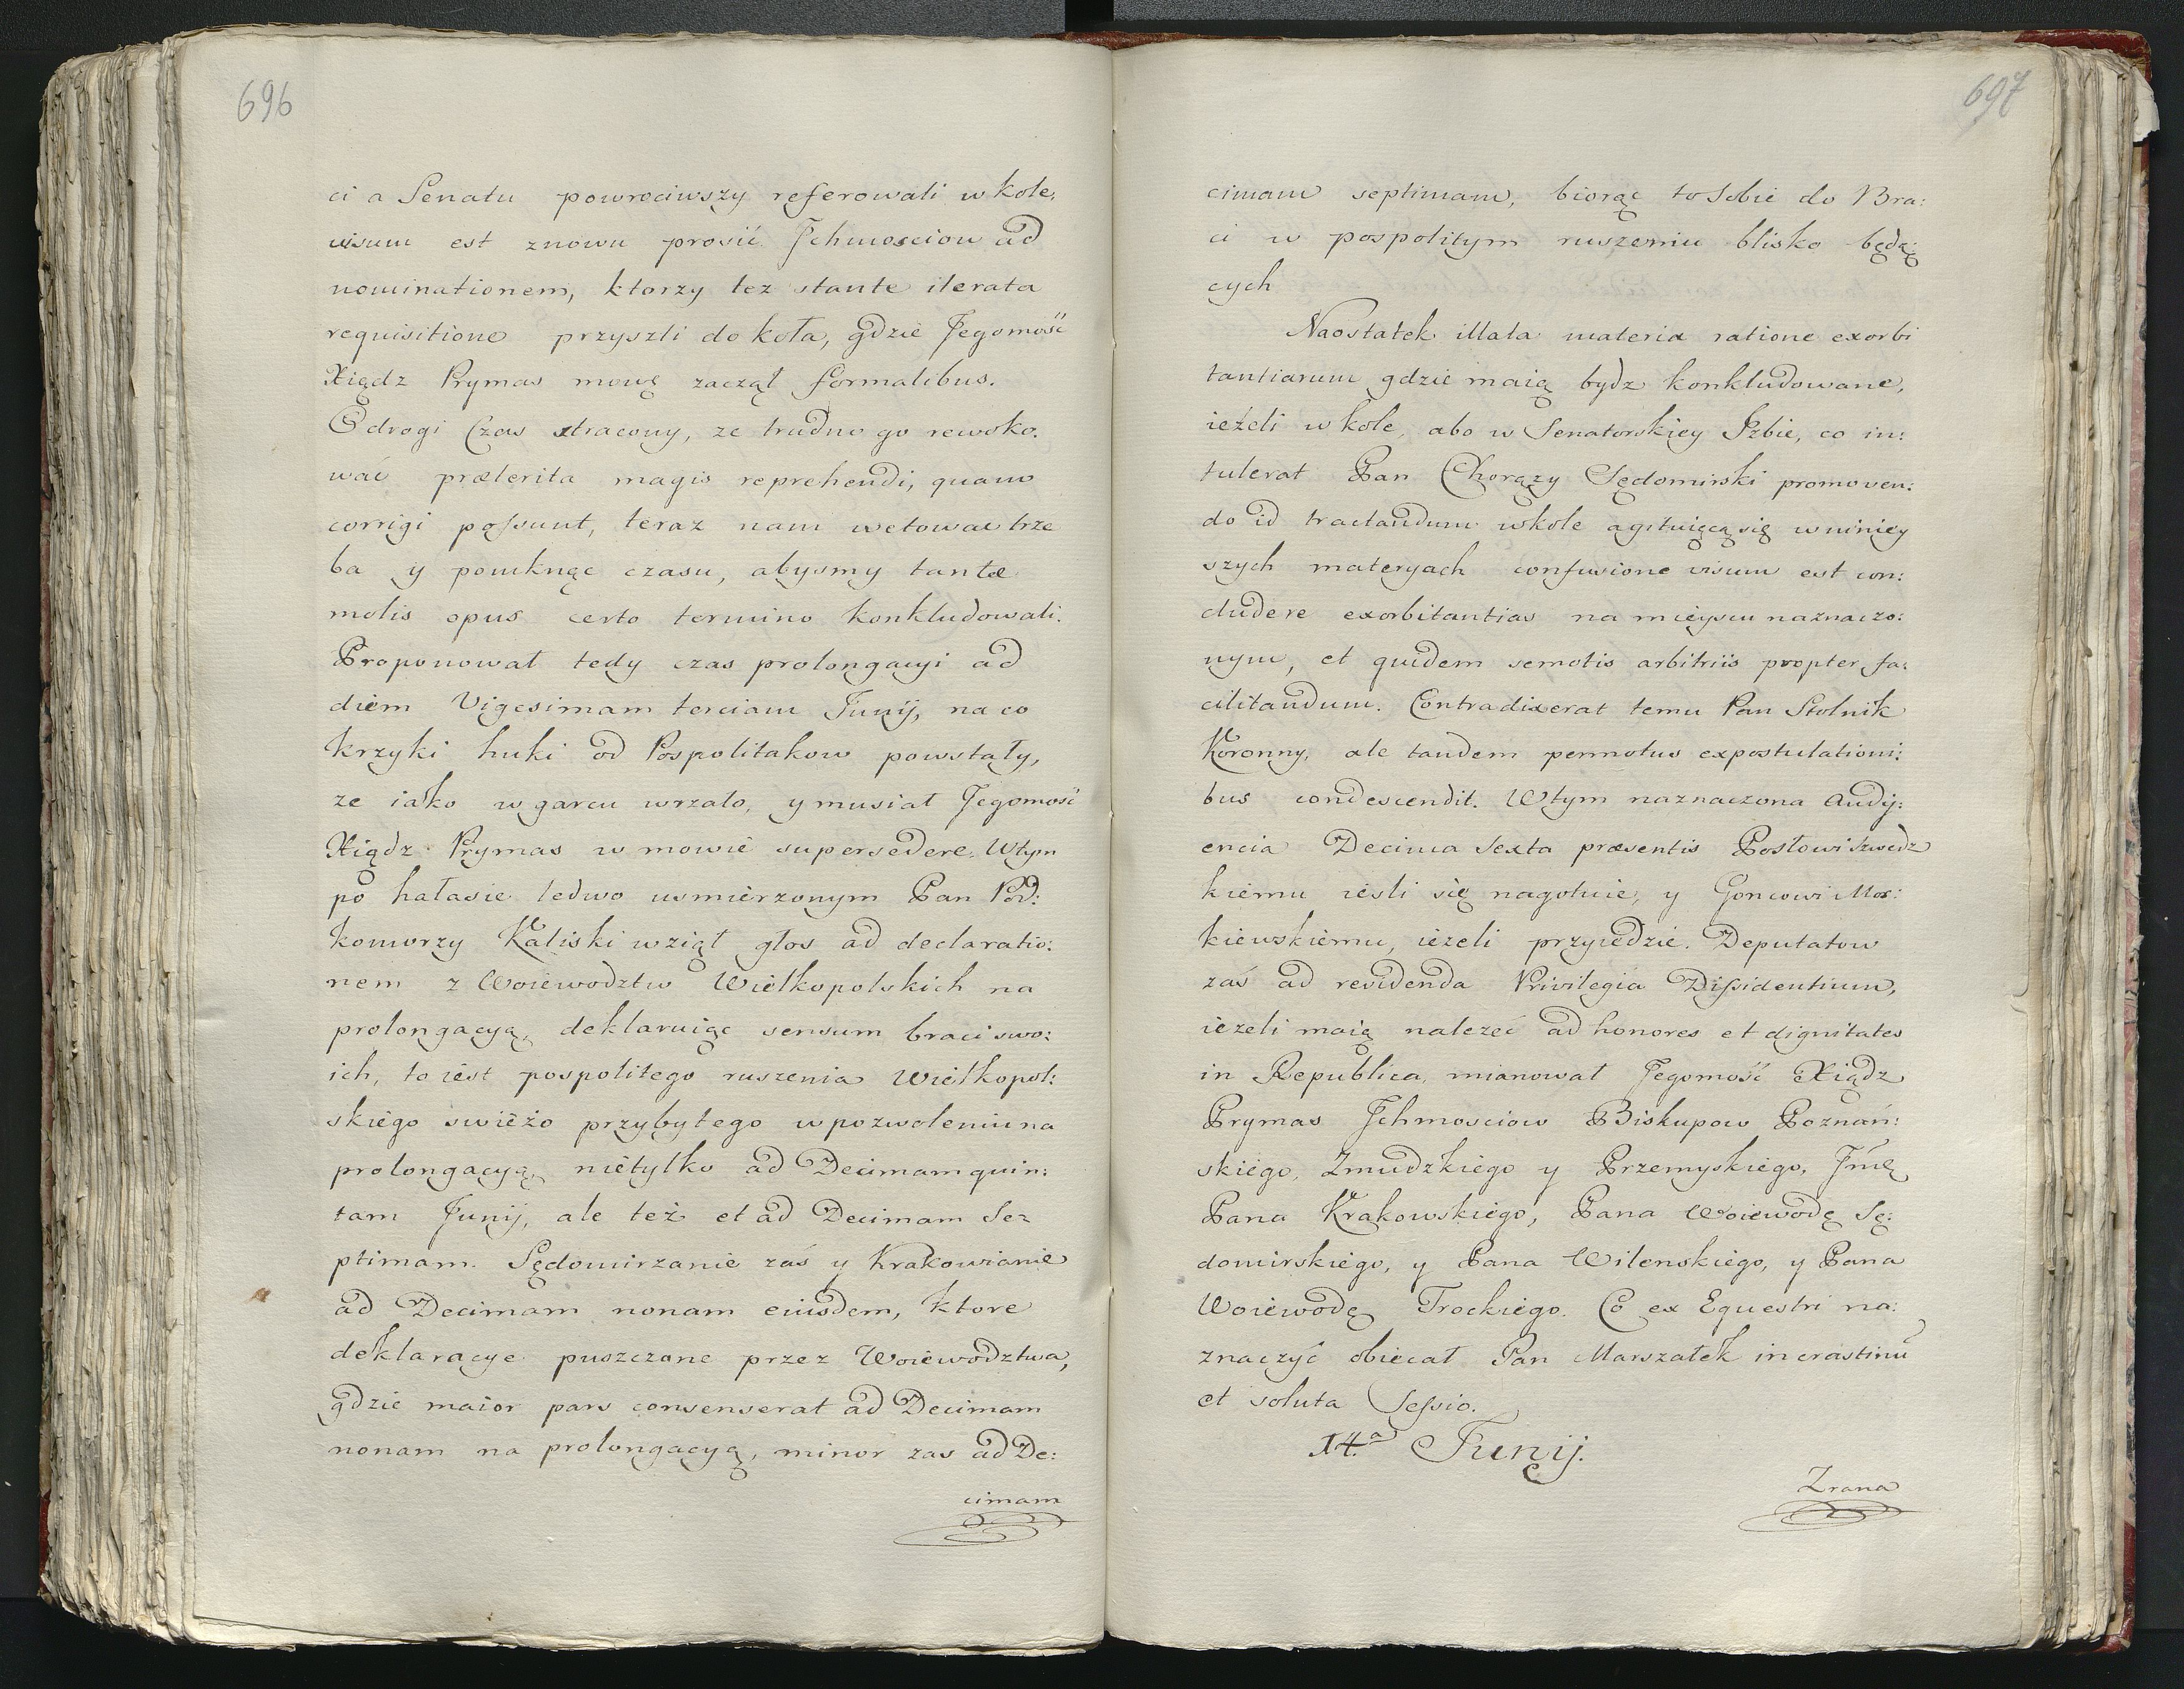 696
ci a Senatu powrociwszy referowali w kole,
visum est znowu prosić Jchmosciow ad
nominationem, ktorzy tez stante iterata
requisitione przyszli do koła, gdzie Jegomość
Xiądz Prymas mowę zaczął formalibus.
O drogi Czas stracony, ze trudno go rewoko.
wać præterita magis reprehendi, quam
corrigi possunt, teraz nam wetowac trze
ba y pomknąc czasu, abysmy tantæ
molis opus certo termino konkludowali.
Proponował tedy czas prolongacyi ad
diem Vigesimam terciam Junij, na co
krzyki huki od Pospolitakow powstały,
ze iako w garcu wrzało, y musiał Jegomość
Xiądz Prymas w mowie supersedere. Wtym
po hałasie ledwo usmierzonym Pan Pod:
komorzy Kaliski wziął głos ad declaratio:
nem z Woiewodztw Wielkopolskich na
prolongacyą, deklaruiąc sensum braci swo:
ich, to iest pospolitego ruszenia Wielkopol:
skiego swieżo przybytego w pozwoleniu na
prolongacyą, nietylko ad Decimam quin:
tam Junij, ale też et ad Decimam Se=
ptimam. Sędomirzanie zaś y Krakowianie
ad Decimam nonam eiusdem, ktore
deklaracye puszczone przez Woiewodztwa,
gdzie maior pars consenserat ad Decimam
nonam na prolongacyą, minor zas ad De:
cimam
697
cimam septimam, biorąc to sobie do Bra:
ci w pospolitym ruszeniu blisko będą:
cych
Naostatek illata materia ratione exorbi
tantiarum gdzie maią bydz konkludowane,
ieżeli w kole, abo w Senatorskiey Jzbie, co in:
tulerat Pan Chorązy Sędomirski promoven:
do id tractandum w kole agituięcą się w niniey
szych materyach confusione visum est con:
cludere exorbitantias na mieyscu naznaczo:
nym, et quidem semotis arbitriis propter fa:
cilitandum. Contradixerat temu Pan Stolnik
Koronny, ale tandem permotus expostulationi:
bus condescendit. Wtym naznaczona Audy:
encia Decima Sexta præsentis Posłowi Szwedz
kiemu iesli się nagotuie, y Goncowi Mos:
kiewskiemu, iezeli przyiedzie. Deputatow
zaś ad revidenda Privilegia Dissidentium,
iezeli maią nalezeć ad honores et dignitates
in Republica, mianował Jegomość Xiądz
Prymas Jchmosciow Biskupow Poznań:
skiego, Zmudzkiego y Przemyskiego, Jmę
Pana Krakowskiego, Pana Woiewodę Sę:
domirskiego, y Pana Wilenskiego, y Pana
Woiewodę Trockiego. Co ex Equestri na:
znaczyć obiecał Pan Marszałek in crastinū
et soluta Sessio.
14.ª Junij.
Zrana